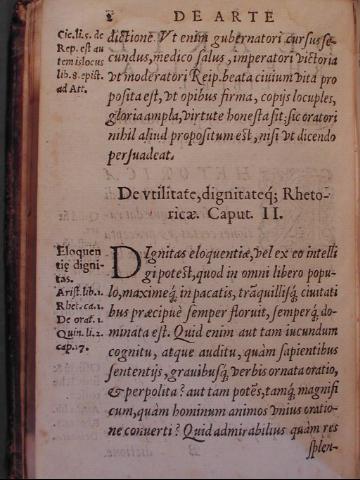 8 DE ARTE
Cic. li. 5. de
Rep. est au
tem is locus
lib. 8. epist.
ad Att.
dictione. Vt enim gubernatori cursus se-
cundus, medico salus, imperatori victoria
vt moderatori Reip. beata ciuium vita pro
posita est, vt opibus firma, copijs locuples,
gloria ampla, virtute honesta sit: sic oratori
nihil aliud propositum est, nisi vt dicendo
persuadeat.
De vtilitate, dignitateq́; Rheto-
ricæ. Caput. II.
Eloquen
tię digni-
tas.
Arist. lib. 1.
Rhet. ca. 1.
De orat. 1.
Quin. li. 2.
cap. 17.
DIgnitas eloquentiæ, vel ex eo intelli
gi potest, quod in omni libero popu-
lo, maximeq́; in pacatis, trãquillisq́; ciuitati
bus præcipuè semper floruit, semperq́; do-
minata est. Quid enim aut tam iucundum
cognitu, atque auditu, quàm sapientibus
sententijs, grauibusq́; verbis ornata oratio,
& perpolita? aut tam potẽs, tamq́; magnifi
cum, quàm hominum animos vnius oratio-
ne conuerti? Quid admirabilius quàm res
splen-